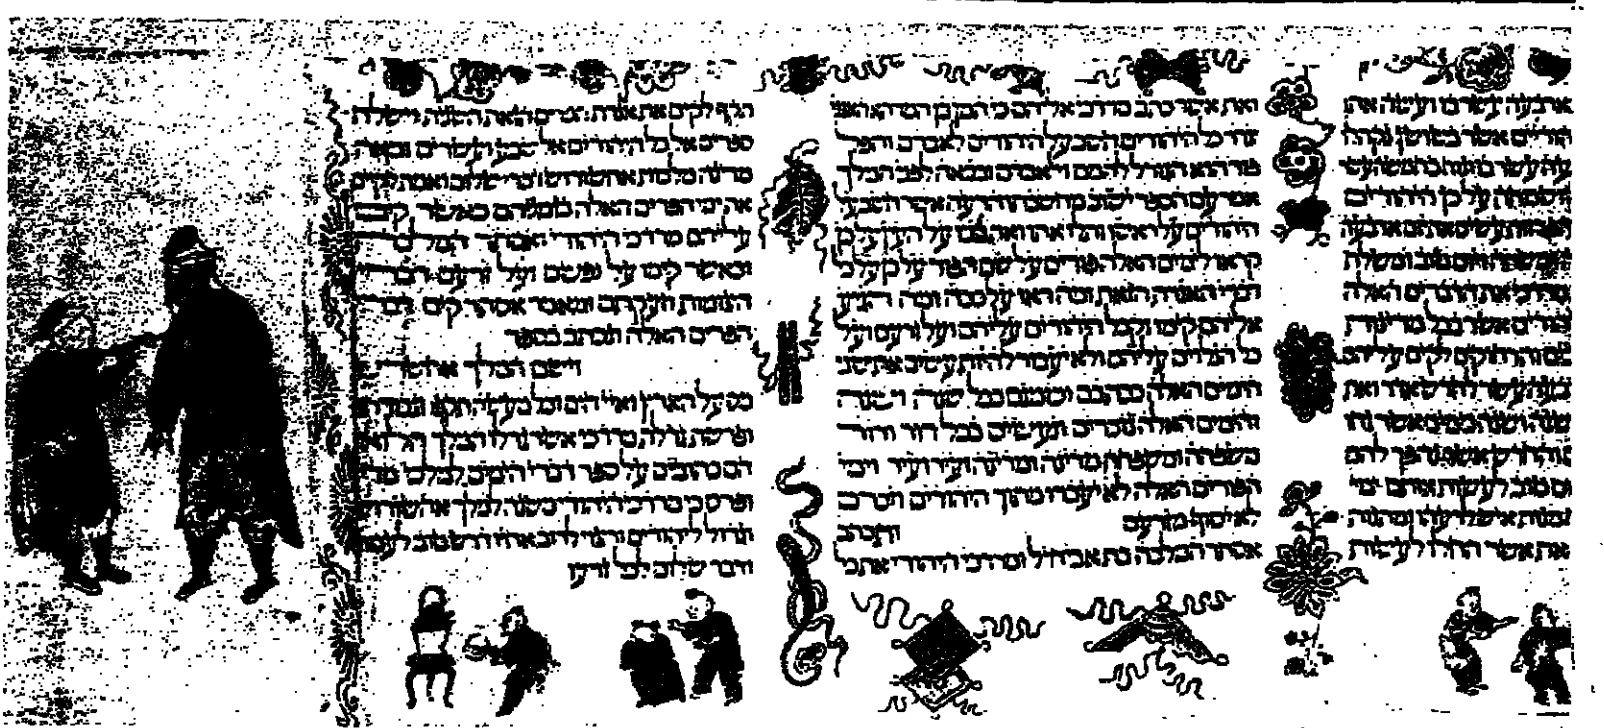 ארבעה עשר בו ועשה אתו
הודיים אשר בשושן נקהלו
עה עשר בו ונוח בחמשה עשר
ושמחה על כן היהודים
הפרזות עשים את יום ארבעה
ומשתה ויום טוב ומשלח
מרדכי את הדברים האלה
יהודים אשר בכל מדינות
בים והרחוקים לקים עליהם
בעה עשר לחדש אדר ואת
שנה ושנה כימים אשר נחו
והחדש אשר נהפך להם
יום טוב לעשות אותם ימי
ומנות איש לרעהו ומתנות
את אשר החלו לעשות
ואת אשר כתב מרדכי אליהם כי המן בן המדתא האגגי
צרר כל היהודים חשב על היהודים לאבדם והפל
פור הוא הגורל להמם ולאבדם ובבאה לפני המלך
אמר עם הספר ישוב מחשבתו הרעה אשר חשב על
היהודים על ראשו ותלו אתו ואת בניו על העץ על כן
קראו לימים האלה פורים על שם הפור על כן על כל
דברי האגרת הזאת ומה ראו על ככה ומה הגיע
אליהם קימו וקבל היהודים עליהם ועל זרעם ועל
כל הנלוים עליהם ולא יעבור להיות עשים את שני
הימים האלה ככתבם וכזמנם בכל שנה ושנה
והימים האלה נזכרים ונעשים בכל דור ודור
משפחה ומשפחה מדינה ומדינה ועיר ועיר וימי
הפורים האלה לא יעברו מתוך היהודים וזכרם
לא יסוף מזרעם ותכתב
אסתר המלכה בת אביחיל ומרדכי היהודי את כל
תקף לקים את אגרת הפרים הזאת השנית וישלח
ספרים אל כל היהודים אל שבע ועשרים ומאה
מדינה מלכות אחשורוש דברי שלום ואמת לקים
את ימי הפרים האלה בזמניהם כאשר קים
עליהם מרדכי היהודי ואסתר המלכה
וכאשר קימו על נפשם ועל זרעם דברי
הצומות וזעקתם ומאמר אסתר קים דברי
הפרים האלה ונכתב בספר
וישם המלך אחשורש
מס על הארץ ואיי הים וכל מעשה תקפו וגבורתו
ופרשת גדלת מרדכי אשר גדלו המלך הלוא
הם כתובים על ספר דברי הימים למלכי מדי
ופרס כי מרדכי היהודי משנה למלך אחשורוש
וגדול ליהודים ורצוי לרב אחיו דרש טוב לעמו
ודבר שלום לכל זרעו